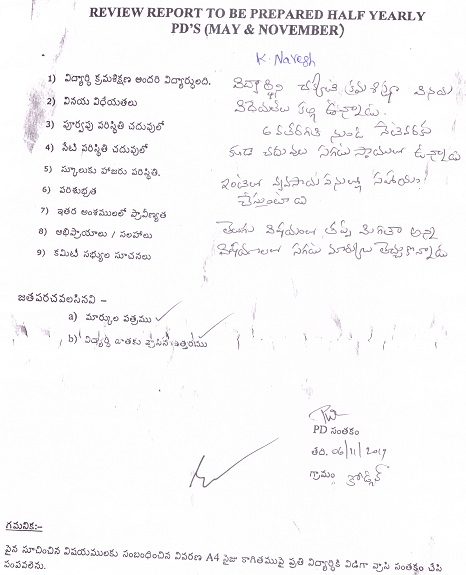 REVIEW REPORT TO BE PREPARED HALF YEARLY
PD'S (MAY & NOVEMBER)
K. Naresh
1) విద్యార్థి క్రమశిక్షణ అందరి విద్యార్థులది.
2) వినయ విధేయతలు
3) పూర్వపు పరిస్థితి చదువులో
4) నేటి పరిస్థితి చదువులో
5) స్కూలుకు హాజరు పరిస్థితి.
6) పరిశుభ్రత
7) ఇతర అంశములలో ప్రావీణ్యత
8) అభిప్రాయాలు / సలహాలు
9) కమిటీ సభ్యుల సూచనలు
విద్యార్థి క్రమశిక్షణ వినయ
విధేయతలు కల్గి ఉన్నాడు.
6 వతరగతి నుండి నేటివరకు
కూడ చదువులో సగటు స్థాయిలో ఉన్నాడు
ఇంటిలో వ్యవసాయ పనులల్లో సహాయం
చేస్తుంటాడు
తెలుగు విషయంలో తప్ప మిగతా అన్ని
విషయాలలో సగటు మార్కులు తెచ్చుకొన్నాడు
జతపరచవలసినవి –
a) మార్కుల పత్రము
b) విద్యార్థి దాతకు వ్రాసిన ఉత్తరము
PD సంతకం
తేది. 06/11/2017
గ్రామం
గమనిక:-
పైన సూచించిన విషయములకు సంబంధించిన వివరణ A4 సైజు కాగితముపై ప్రతి విద్యార్థికి విడిగా వ్రాసి సంతకం చేసి
పంపవలెను.